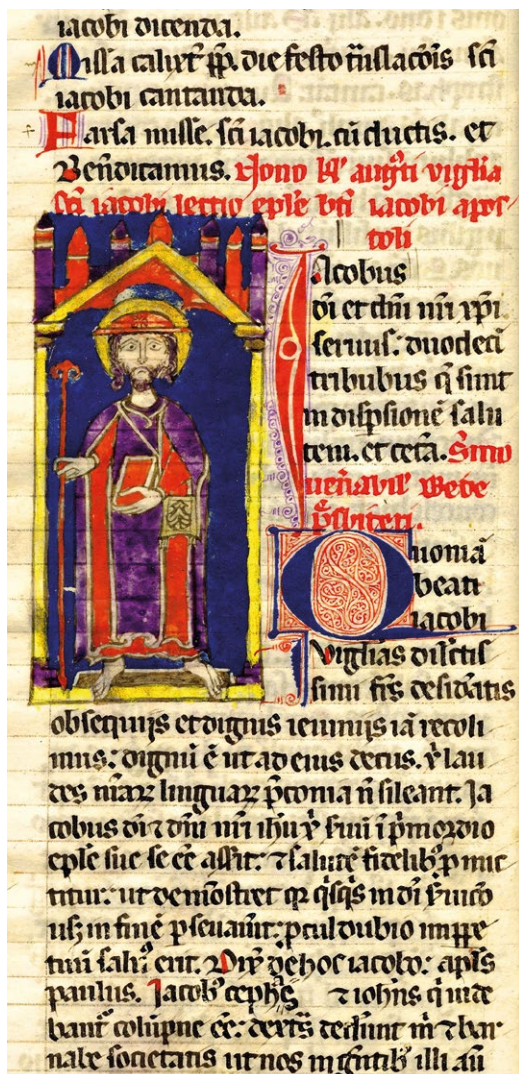 iacobi dicenda.
Missa calixt̄ pp̄. die festo t̄nslac̄ois sc̄i
iacobi cantanda.
Farsa misse. sc̄i iacobi. cū ductis. et
Benēdicamus. Nono kl' augti vigilia
sc̄i iacobi lectio ep̄le bt̄i iacobi apos
toli
Iacobus
d̄i et dn̄i nr̄i xp̄i
seruus: duodeci
tribubus q̄ sunt
in disp̄sione salu
tem. et ceta. Smo
uen̄abil' Bede
p̄sbiteri.
Quoniā
beati
iacobi
vigilias dilectis
simi frs̄ desid̄atis
obsequijs et dignis ieiunijs iā recoli
mus: dignū ē ut ad eius decus. ⁊ lau
des nr̄aꝝ linguaꝝ p̄conia n̄ sileant. Ja
cobus d̄i ⁊ dn̄i nr̄i ihū x̄ suū ī p̄mordio
ep̄le sue se ēē assit: ⁊ salutē fidelibꝫ p mit
titur: ut demōstret qꝛ q̄sq̄s in d̄i s̄uicō
usꝫ in finē pseuauit: pcul dubio in ppe
tuū saluꝰ erit. Dix̄ de hoc iacobo: ap̄ls
paulus. Jacobꝰ cephas ⁊ ioh̄ns q̄ uide
bant̄ colūpne ēē: dext̄s dedunt m̄ ⁊ bar
nabe societatis ut nos in gn̄tibꝫ illi aū